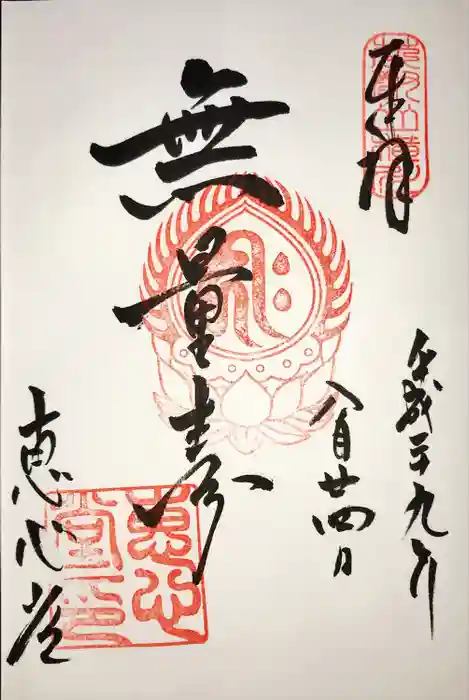 奉拝
平成二十九年
八月廿四日
無量寿
恵心堂
恵心堂印